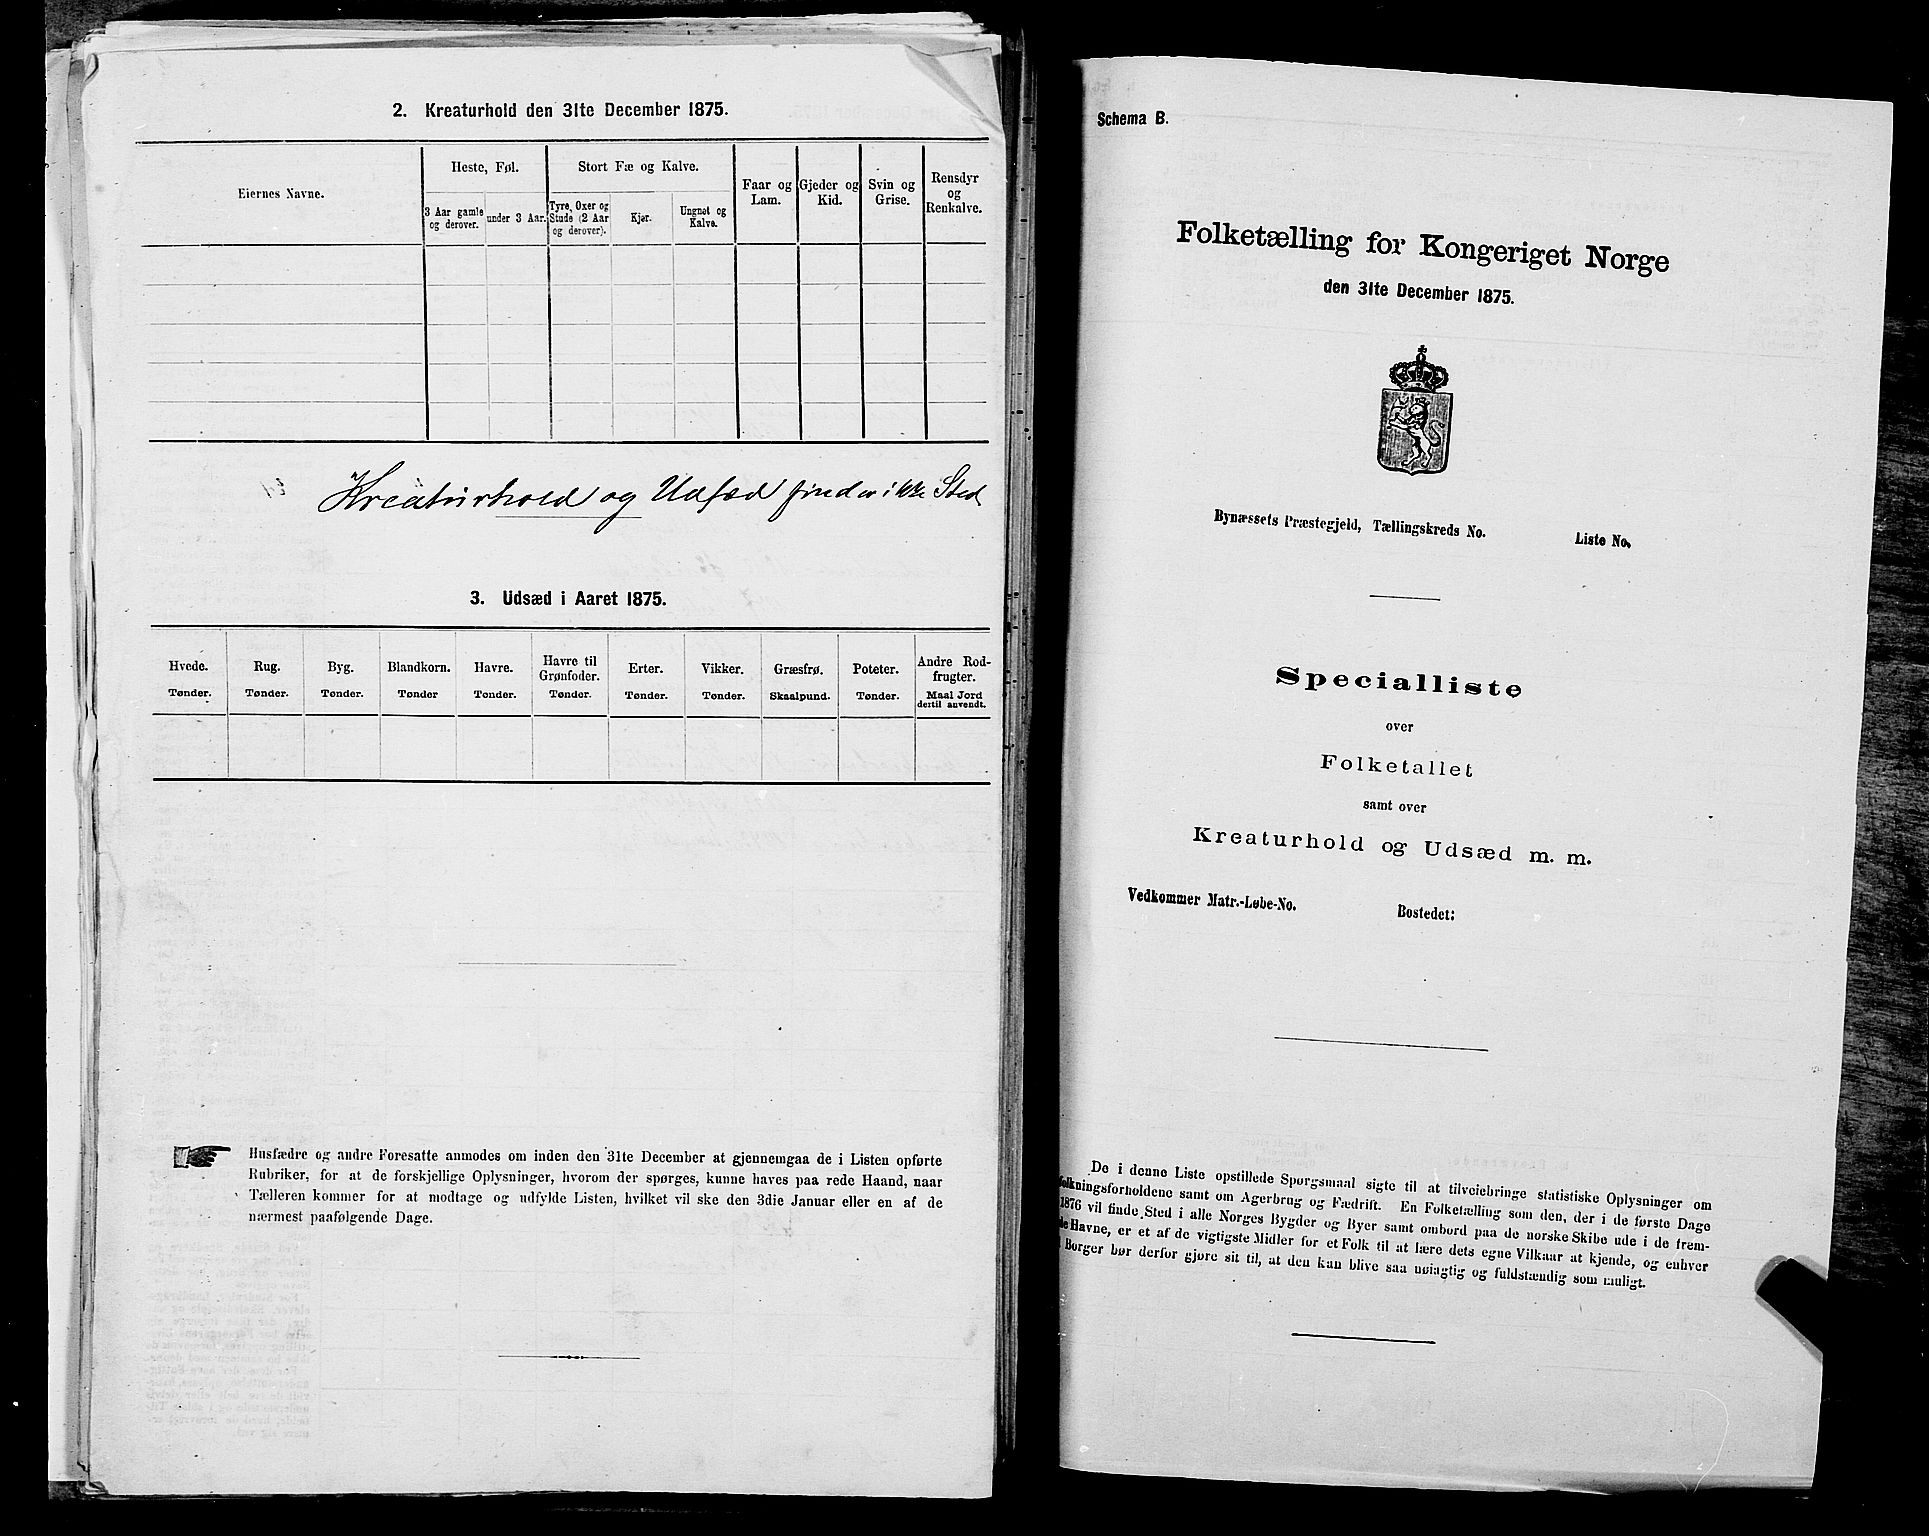 2. Kreaturhold den 31te December 1875.
Eiernes Navne.
Heste, Føl.
Stort Fæ og Kalve.
Faar og Lam.
Gjeder og Kid.
Svin og Grise.
Rensdyr og Renkalve.
3 Aar gamle og derover.
under 3 Aar.
Tyre, Oxer og Stude (2 Aar og derover).
Kjør.
Ungnøt og Kalve.
Kreaturhold og Udsæd finder ikke Sted
3. Udsæd i Aaret 1875.
Hvede. Rug. Byg. Blandkorn. Havre. Havre til Grønfoder. Erter. Vikker. Græsfrø. Poteter. Andre Rodfrugter.
Tønder. Tønder. Tønder. Tønder Tønder. Tønder. Tønder. Tønder. Skaalpund. Tønder. Maal Jord dertil anvendt.
Husfædre og andre Foresatte anmodes om inden den 31te December at gjennemgaa de i Listen opførte
Rubriker, for at de forskjellige Oplysninger, hvorom der spørges, kunne haves paa rede Haand, naar
Tælleren kommer for at modtage og udfylde Listen, hvilket vil ske den 3die Januar eller en af de
nærmest paafølgende Dage.
Schema B.
Folketælling for Kongeriget Norge
den 31te December 1875.
Bynæssets Præstegjeld, Tællingskreds No. Liste No.
Specialliste
over
Folketallet
samt over
Kreaturhold og Udsæd m. m.
Vedkommer Matr.-Løbe-No. Bostedet:
De i denne Liste opstillede Spørgsmaal sigte til at tilveiebringe statistiske Oplysninger om
folkningsforholdene samt om Agerbrug og Fædrift. En Folketælling som den, der i de første Dage
1876 vil finde Sted i alle Norges Bygder og Byer samt ombord paa de norske Skibe ude i de frem-
de Havne, er et af de vigtigste Midler for et Folk til at lære dets egne Vilkaar at kjende, og enhver
Borger bør derfor gjøre sit til, at den kan blive saa nøiagtig og fuldstændig som muligt.